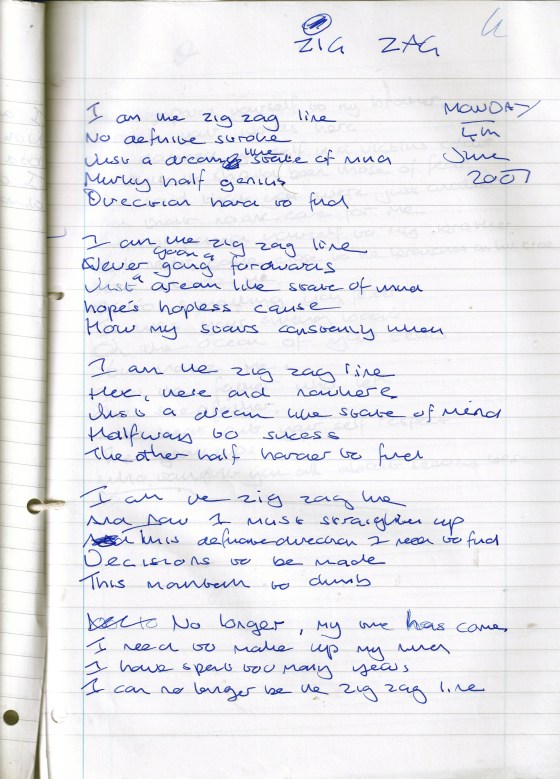 ZIG ZAG
MONDAY
4th
June
2007
I am the zig zag line
No definite stroke
Just a dream like state of mind
Murky half genius
Direction hard to find
I am the zig zag line
Never going forwards
Just a dream like state of mind
hope's hopless cause
How my stars constantly
I am the zig zag line
Here, there and nowhere
Just a dream like state of mind
Halfway to sucess
The other half harder to find
I am the zig zag line
And now I must straighten up
This definite direction I need to find
Decisions to be made
This mountain to climb
No longer, my time has come
I need to make up my mind
I have spent too many years
I can no longer be the zig zag line